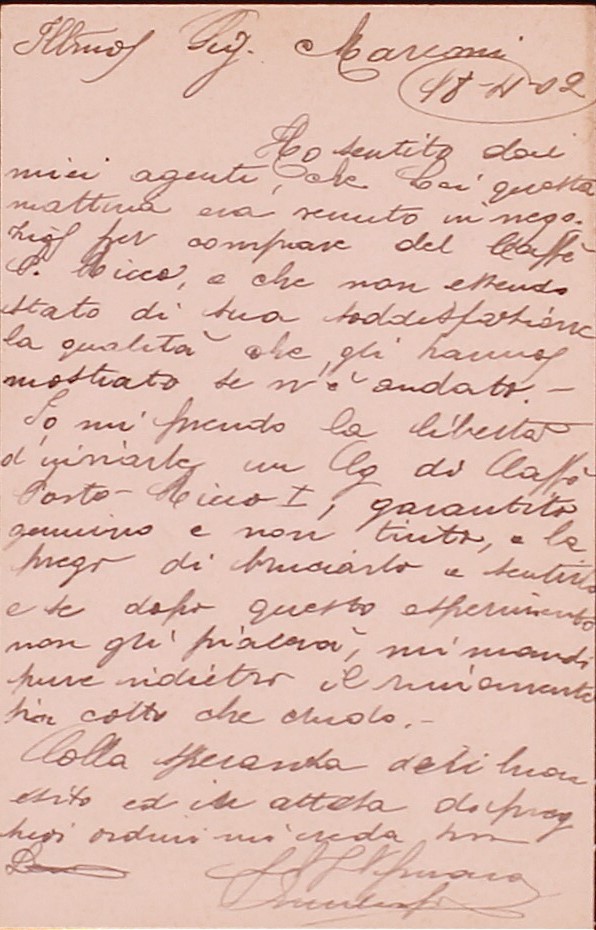 Illmo Sig. Marconi
18-11-02
Ho sentito dai
miei agenti, che Lei questa
mattina era venuto in nego-
zio per comprare del Caffè
P. Ricco, e che non essendo
stato di sua soddisfazione
la qualità che gli hanno
mostrato se n'è andato. –
Io mi prendo la libertà
d'inviarle un Kg di Caffè
Porto-Ricco I, garantito
genuino e non tinto, e la
prego di bruciarlo e sentirlo
e se dopo questo esperimento
non gli piacerà, mi mandi
pure indietro il rimanente
sia cotto che crudo. –
Colla speranza del buon
esito ed in attesa di preg
ordini mi creda